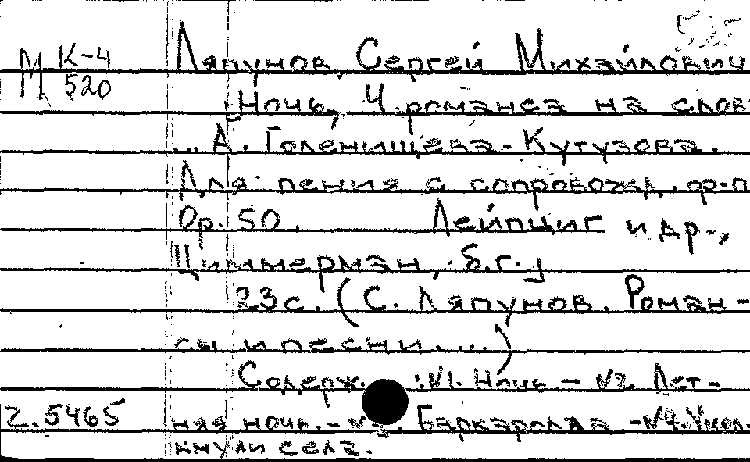 535
М К-4
520
Ляпунов, Сергей Михайлович
"Ночь, 4 романса на слов
... А. Голенищева-Кутузова.
Для пения с сопровожд. ф-п
Op. 50. Лейпциг и др.,
Циммерман, б.г.
23 с. (С. Ляпунов. Роман-
сы и песни. ...)
Содерж. : №1. Ночь - №2. Лет-
2.5465
няя ночь. - №3. Баркаролла - №4. Умол-
кнули села.